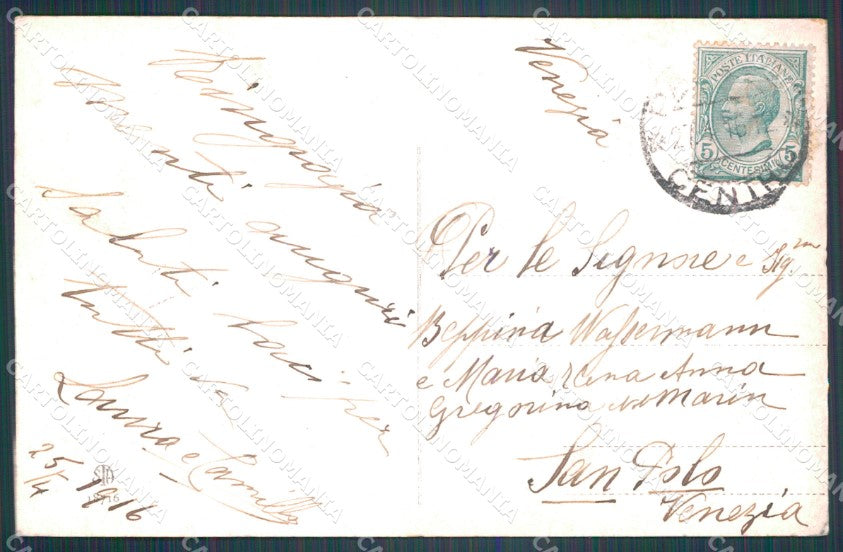 Ringrazia
auguri
saluti baci per
tutti da
Laura e Camillo
25/4 1916
Venezia
POSTE ITALIANE
5 CENTESIMI 5
CENTRO
Per le Signore e Sig.
Beppina Wassermann
e Maria Anna
Gregorina Marin
San Polo
Venezia
CARTOLINOMANIA